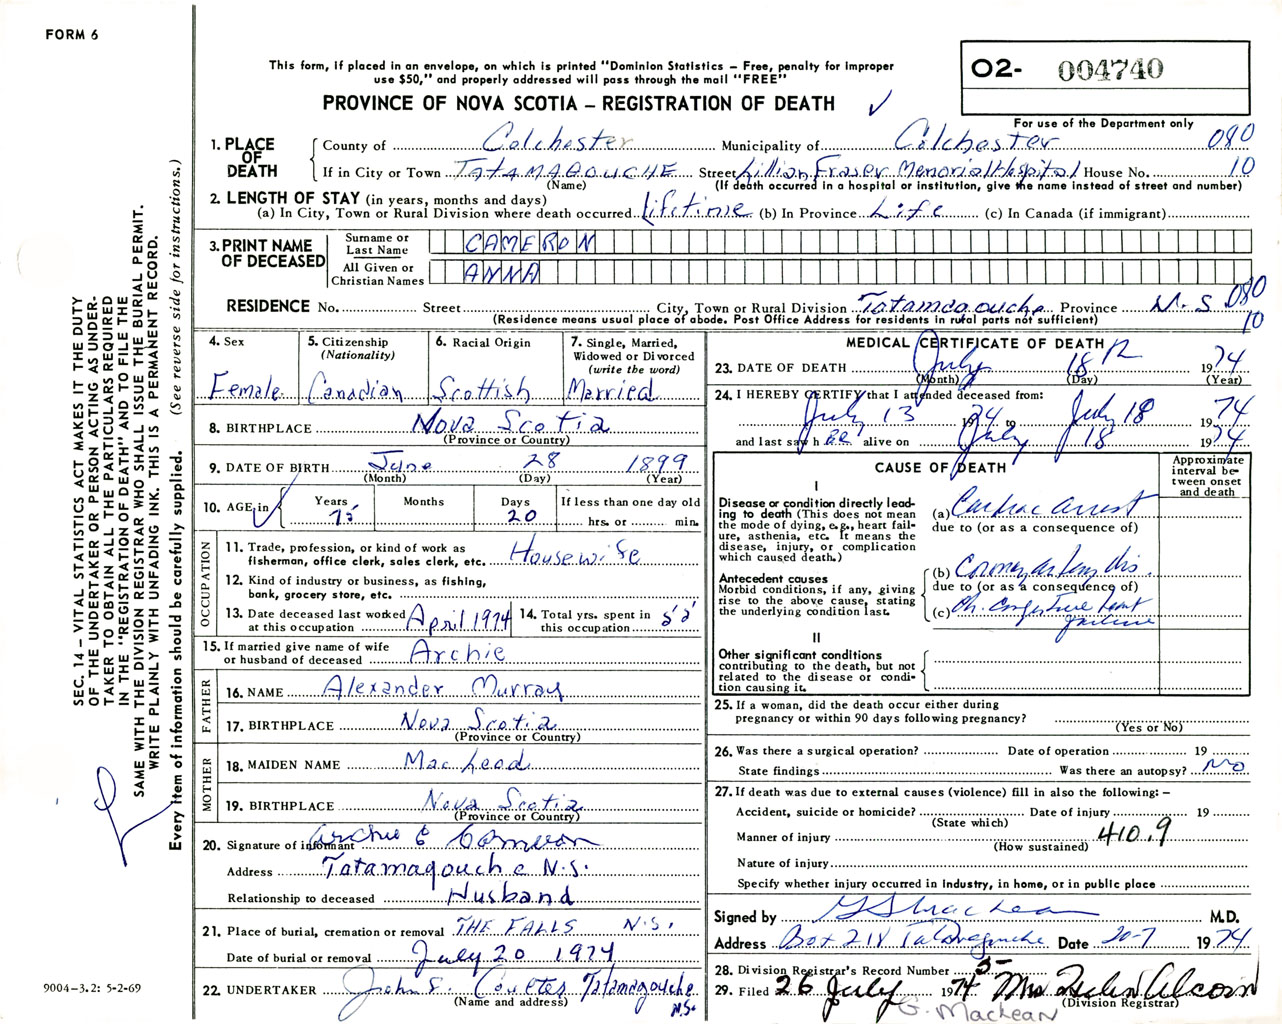 FORM 6
This form, if placed in an envelope, on which is printed "Dominion Statistics – Free, penalty for improper
use $50," and properly addressed will pass through the mail "FREE"
PROVINCE OF NOVA SCOTIA – REGISTRATION OF DEATH
O2- 004740
For use of the Department only
080
10
1. PLACE OF DEATH
County of Colchester Municipality of Colchester
If in City or Town TATAMAGOUCHE Street Lillian Fraser Memorial Hospital House No.
(Name) (If death occurred in a hospital or institution, give the name instead of street and number)
2. LENGTH OF STAY (in years, months and days)
(a) In City, Town or Rural Division where death occurred Lifetime (b) In Province Life (c) In Canada (if immigrant)
3. PRINT NAME OF DECEASED
Surname or Last Name CAMERON
All Given or Christian Names ANNA
RESIDENCE No. Street City, Town or Rural Division Tatamagouche Province N.S. 080
(Residence means usual place of abode. Post Office Address for residents in rural parts not sufficient) 10
4. Sex
Female
5. Citizenship
(Nationality)
Canadian
6. Racial Origin
Scottish
7. Single, Married,
Widowed or Divorced
(write the word)
Married
8. BIRTHPLACE Nova Scotia
(Province or Country)
9. DATE OF BIRTH June 28 1899
(Month) (Day) (Year)
10. AGE in
Years 75
Months
Days 20
If less than one day old
hrs. or min.
OCCUPATION
11. Trade, profession, or kind of work as
fisherman, office clerk, sales clerk, etc. Housewife
12. Kind of industry or business, as fishing,
bank, grocery store, etc.
13. Date deceased last worked
at this occupation April 1974
14. Total yrs. spent in
this occupation 55
15. If married give name of wife
or husband of deceased Archie
FATHER
16. NAME Alexander Murray
17. BIRTHPLACE Nova Scotia
(Province or Country)
MOTHER
18. MAIDEN NAME MacLeod
19. BIRTHPLACE Nova Scotia
(Province or Country)
20. Signature of informant Archie E Cameron
Address Tatamagouche N.S.
Relationship to deceased Husband
21. Place of burial, cremation or removal THE FALLS N.S.
Date of burial or removal July 20 1974
22. UNDERTAKER John E. Coultes Tatamagouche
(Name and address) N.S.
MEDICAL CERTIFICATE OF DEATH
23. DATE OF DEATH July 18th 1974
(Month) (Day) (Year)
24. I HEREBY CERTIFY that I attended deceased from:
July 13 1974 to July 18 74
and last saw her alive on July 18 1974
CAUSE OF DEATH
Approximate
interval be-
tween onset
and death
I
Disease or condition directly lead-
ing to death (This does not mean
the mode of dying, e.g., heart fail-
ure, asthenia, etc. It means the
disease, injury, or complication
which caused death.)
(a) Cardiac arrest
due to (or as a consequence of)
Antecedent causes
Morbid conditions, if any, giving
rise to the above cause, stating
the underlying condition last.
(b) Coronary artery dis.
due to (or as a consequence of)
(c) Ch. Congestive heart
failure
II
Other significant conditions
contributing to the death, but not
related to the disease or condi-
tion causing it.
25. If a woman, did the death occur either during
pregnancy or within 90 days following pregnancy?
(Yes or No)
26. Was there a surgical operation? Date of operation 19
State findings Was there an autopsy? No
27. If death was due to external causes (violence) fill in also the following: –
Accident, suicide or homicide? Date of injury 19
(State which)
Manner of injury 410.9
(How sustained)
Nature of injury
Specify whether injury occurred in industry, in home, or in public place
Signed by G S MacLean M.D.
Address Box 218 Tatamagouche Date 20-7 1974
28. Division Registrar's Record Number 5
29. Filed 26 July 1974 Mrs
(Division Registrar)
G. MacLean
SEC. 14 – VITAL STATISTICS ACT MAKES IT THE DUTY
OF THE UNDERTAKER OR PERSON ACTING AS UNDER-
TAKER TO OBTAIN ALL THE PARTICULARS REQUIRED
IN THE "REGISTRATION OF DEATH" AND TO FILE THE
SAME WITH THE DIVISION REGISTRAR WHO SHALL ISSUE THE BURIAL PERMIT.
WRITE PLAINLY WITH UNFADING INK. THIS IS A PERMANENT RECORD.
Every item of information should be carefully supplied. (See reverse side for instructions.)
9004–3.2: 5-2-69